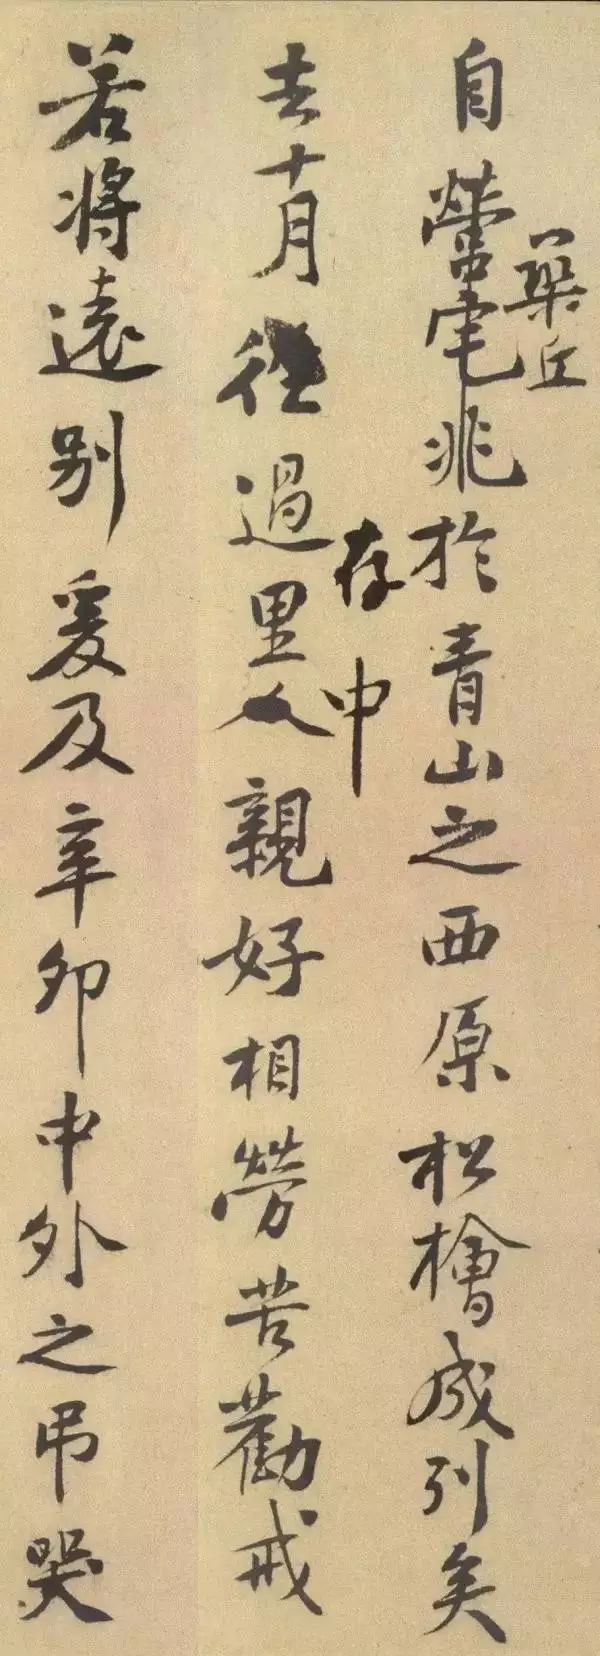 自營宅兆於青山之西原松檜成列矣
丘
去十月過里人親好相勞苦勸戒
存中
若將遠別爰及辛卯中外之吊哭